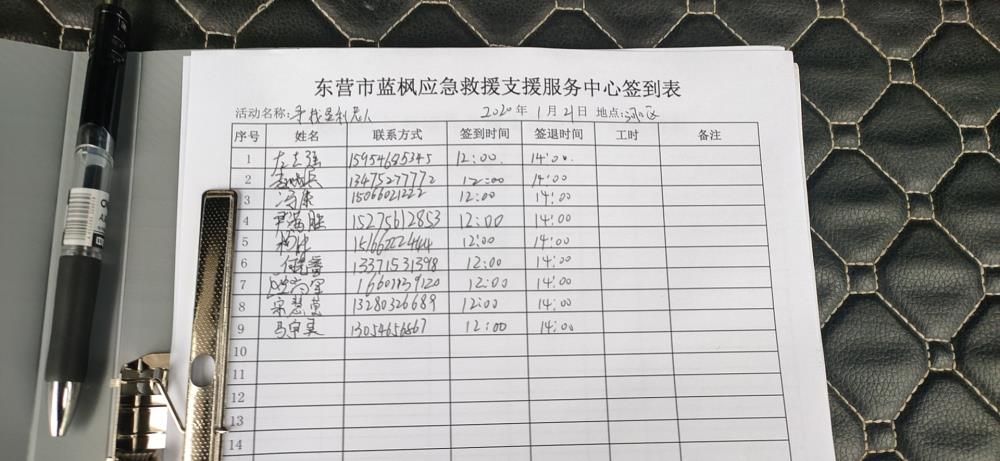 东营市蓝枫应急救援支援服务中心签到表
活动名称: 2020年 1月21日 地点:河口区
序号 姓名 联系方式 签到时间 签退时间 工时 备注
1 左志强 15954685345 12:00 14:00
2 13475277772 12:00 14:00
3 冯康 15066021222 12:00 14:00
4 尹海胜 15275612853 12:00 14:00
5 12:00 14:00
6 13371531398 12:00 14:00
7 12:00 14:00
8 宋慧莹 13280326689 12:00 14:00
9 13054656867 12:00 14:00
10
11
12
13
14